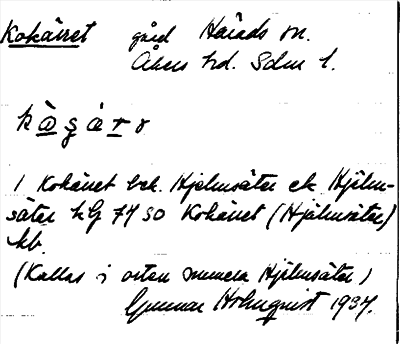 Kokärret gård Härads sn.
Åkers hd. Sdm l.
1 Kokärret bek. Hjelmsäter ek Hjälm-
säter hG 77 50 Kokärret (Hjälmsäter)
kb.
(Kallas i orten numera Hjälmsäter)
Gunnar Holmquist 1937.